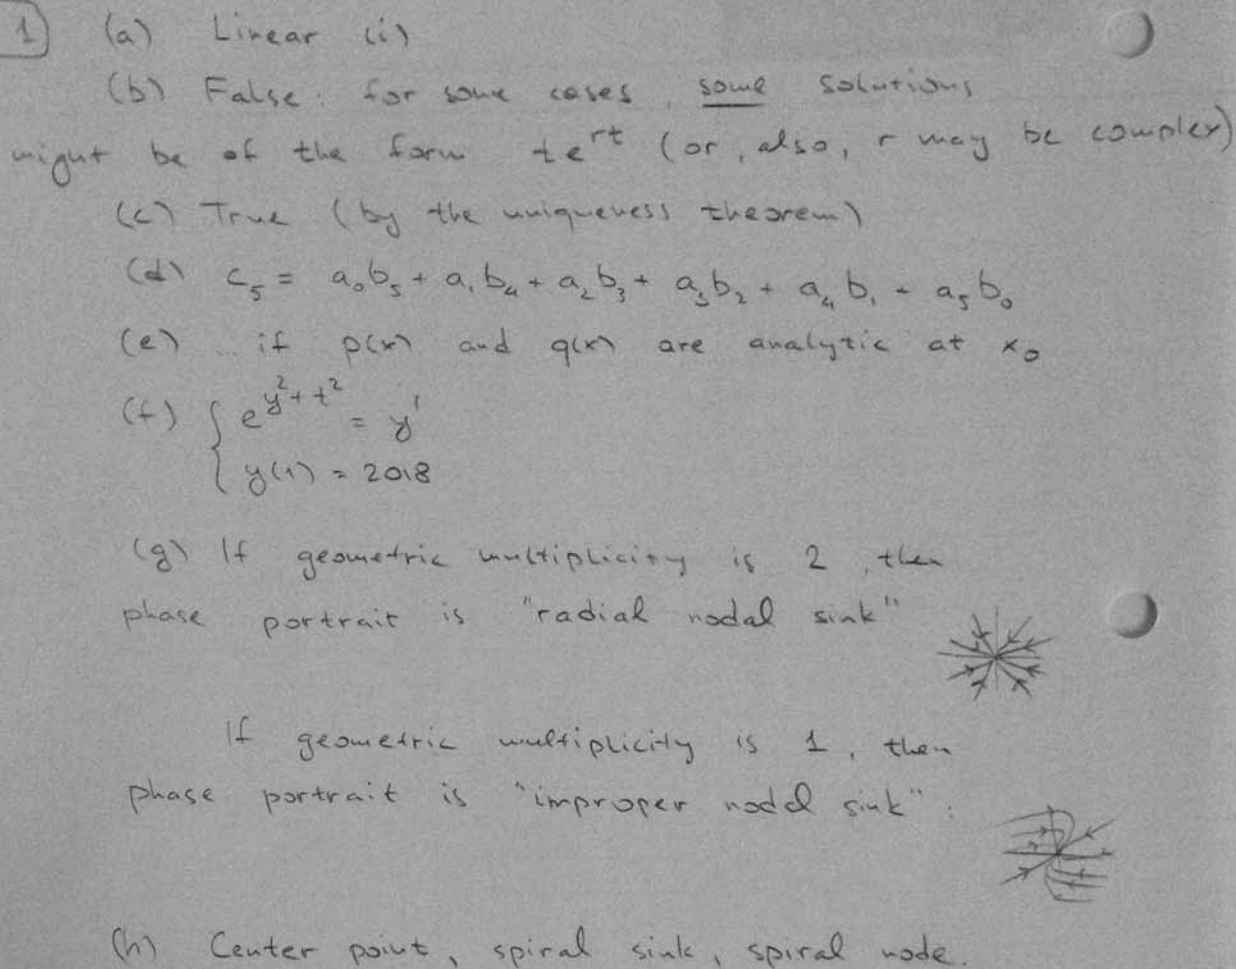 1 (a) Linear (i)
(b) False: for some cases, some solutions
might be of the form te^rt (or, also, r may be complex)
(c) True (by the uniqueness theorem)
(d) c₅ = a₀b₅ + a₁b₄ + a₂b₃ + a₃b₂ + a₄b₁ + a₅b₀
(e) ... if p(x) and q(x) are analytic at x₀
(f) { e^(y²+t²) = y'
y(1) = 2018
(g) If geometric multiplicity is 2, then
phase portrait is "radial nodal sink"
If geometric multiplicity is 1, then
phase portrait is "improper nodal sink".
(h) Center point, spiral sink, spiral node.